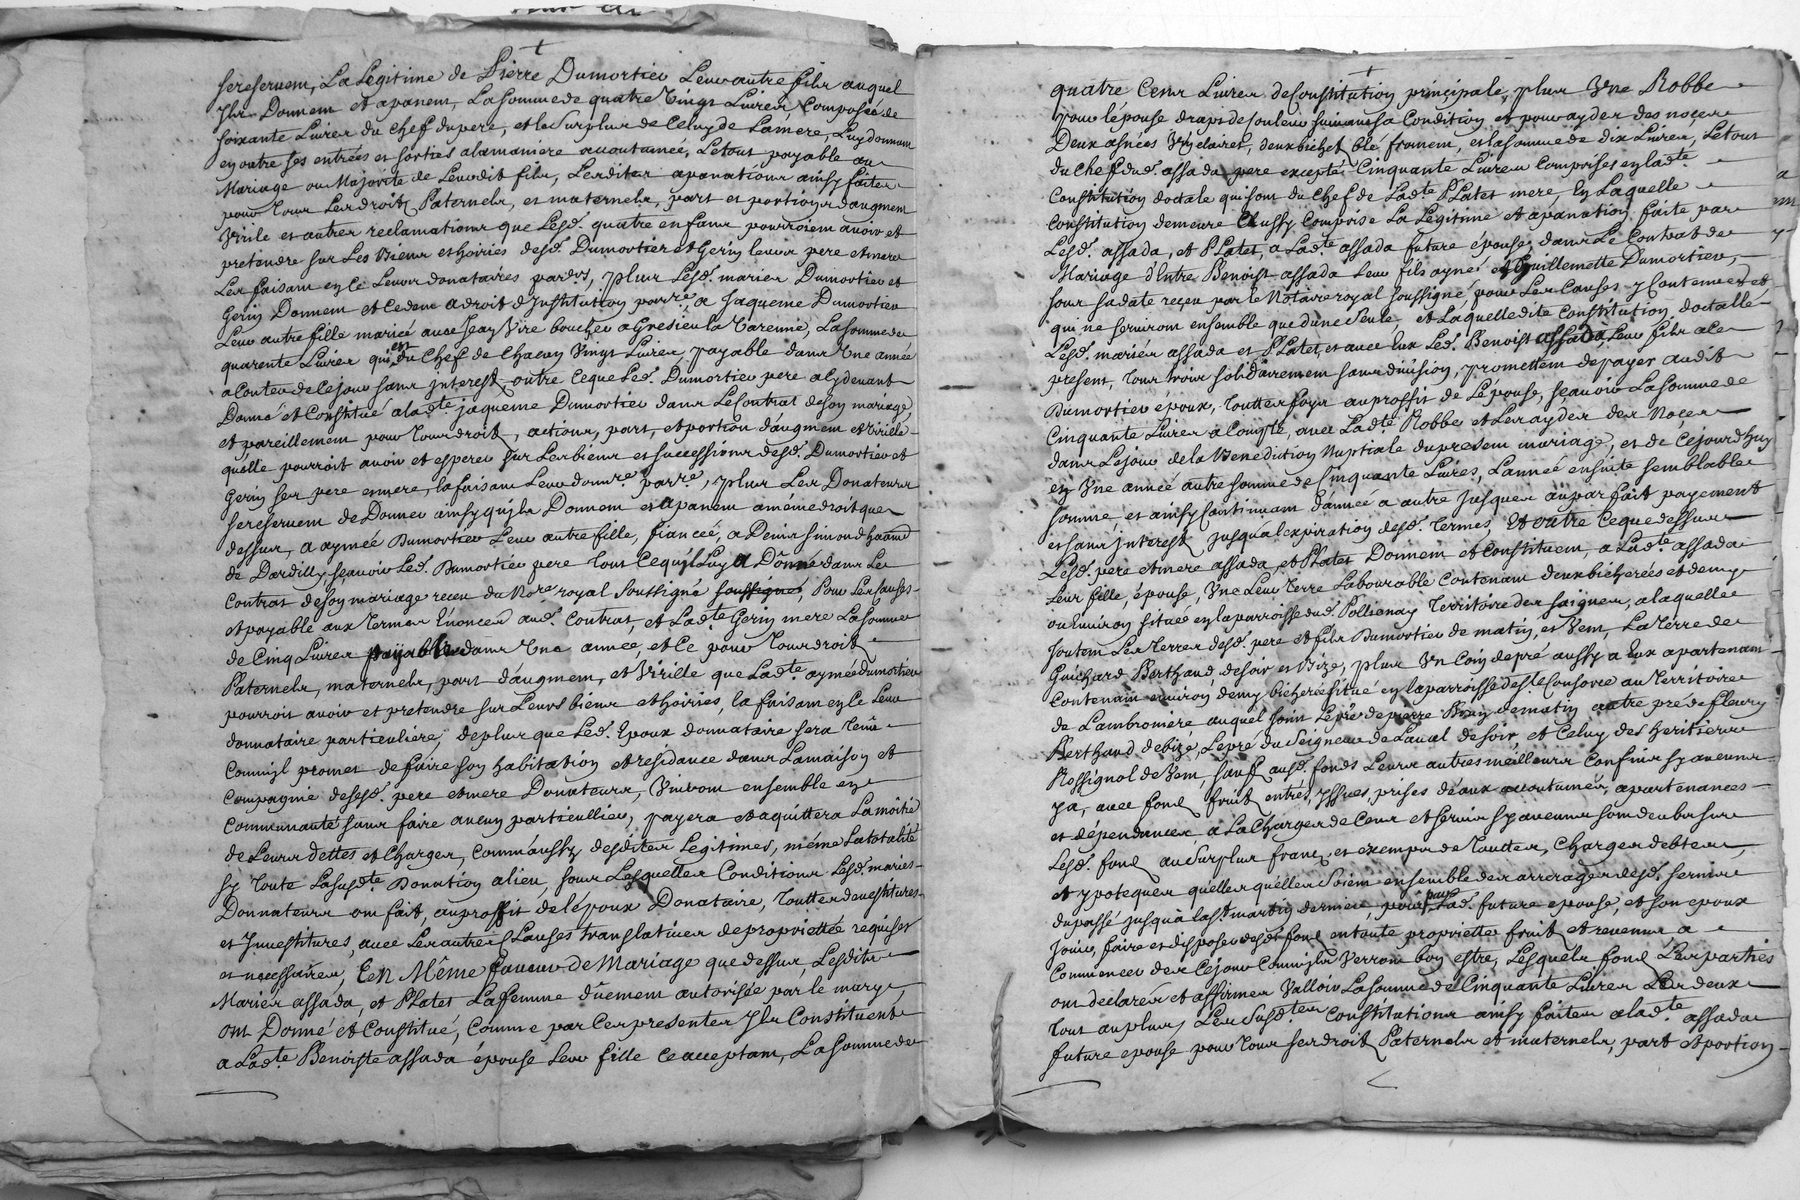 se reservent, La Legitime de Pierre Dumortier Leur autre fils auquel
Ils Donnent et apanent, La somme de quatre vingt Livres Composée de
soixante Livres du chef du pere, et le surplus de Celuy de La mere, Luy donnant
en outre ses entrées et sorties a la maniere accoutumée, Le tout payable au
Mariage ou Majorité de Leurdit fils, Lesdites apanations ainsy faites
pour tous Les droits Paternels, et maternels, part et portions daugment
Virile et autres reclamations que Lesd. quatre enfans pourroient avoir et
pretendre sur Les Biens et hoiries desd. Dumortier et Gerin leurs pere et mere
Les faisant en ce Leurs donataires par.res, plus Lesd. mariés Dumortier et
Gerin Donnent et Cedent a droit d'Institution par.re, a Jaqueme Dumortier
Leur autre fille mariée avec Jean Vire boucher a Gresieu la Varenne, La somme de
quarente Livres qui est du Chef de Chacun Vingt Livres, payable dans Une année
a Conter de Ce jour sans Interest, outre Ce que Led. Dumortier pere a Cy devant
Donné et Constitué a lad.te jaqueme Dumortier dans Le Contrat de son mariage,
et pareillement pour tous droits, actions, part, et portion d'augment et Virille
qu'elle pourroit avoir et esperer sur Les biens et successions desd. Dumortier et
Gerin ses pere et mere, la faisant Leur donn.re par.re, plus Les Donateurs
se reservent de Donner ainsy qu'ils Donnent et apanent a même droit que
dessus, a aymée Dumortier Leur autre fille, fiancée, a Denis Simond
de Dardilly sçavoir Led. Dumortier pere tout Ce qu'il Luy a Donné dans Le
Contrat de son mariage receu du No.re royal soussigné soussigné, Pour Les Causes
et payable aux termes Enoncés aud. Contrat, et Lad.te Gerin mere La somme
de Cinq Livres payable dans Une année, et Ce pour tous droits
Paternels, maternels, part d'augment, et Virille que Lad.te aymée dumortier
pourroit avoir et pretendre sur Leurs biens et hoiries, la faisant en ce Leur
donnataire particuliere, de plus que Led. Epoux donnataire sera tenu
Comm'il promet de faire son habitation et residance dans La maison et
Compagnie desesd. pere et mere Donateurs, Vivront ensemble en
Communauté sans faire aucun particullier, payera et aquittera La moitié
de Leurs dettes et Charges, Comm'aussy desdites Legitimes, même La totalité
sy toute La susd.te Donation a lieu, sous Lesquelles Conditions Lesd. mariés
Donnateurs ont fait, au proffit de l'époux Donataire, toutte devestitures
et Investitures, avec Les autres Clauses translatives de propriettée requises
et necessaires, En Même faveur de Mariage que dessus, Lesdits
Mariés assada, et Platet La femme dûement autorisée par le mary
ont Donné et Constitué, Comme par Ces presentes Ils Constituent
a Lad.te Benoiste assada épouse Leur fille ce acceptant, La somme de
quatre Cent Livres de Constitution principale, plus Une Robbe
pour l'épouse drap de souleur suivant sa Condition et pour ayder des noces
Deux asnées Vin clairet, deux bichet blé froment, et la somme de dix Livres, Le tout
du Chef dud. assada pere excepté Cinquante Livres Comprises en lad.te
Constitution dotale qui sont du Chef de Lad.te Platet mere, En Laquelle
Constitution demeure Aussy Comprise La Légitime et apanation faite par
Lesd. assada, et Platet, a Lad.te assada future épouse, dans Le Contrat de
Mariage d'Entre Benoist assada Leur fils ayné et Guillemette Dumortier,
sous sa date reçeu par le Notaire royal soussigné, pour Les Causes y Contenües et
qui ne serviront ensemble que d'une seule, et Laquelle dite Constitution dotalle
Lesd. mariés assada et Platet, et avec Eux Led. Benoist assada Leur fils a ce
present, tous trois solidairement sans division, promettent de payer audit
Dumortier époux, touttefoys au proffit de L'épouse, sçavoir La somme de
Cinquante Livres a Compte, avec Lad.te Robbe et Les ayder des Noces
dans Le jour de la Benediction Nuptiale du present mariage, et de Ce jourd'huy
en Une année autre somme de Cinquante Livres, L'année ensuite semblable
somme, et ainsy Continuant d'année a autre jusques au parfait payement
et sans Interest jusqu'a l'expiration desd. termes, Et outre Ce que dessus
Lesd. pere et mere assada, et Platet Donnent et Constituent, a Lad.te assada
Leur fille, épouse, Une Leur Terre Labourable Contenant deux bicherées et demy
ou Environ située en la parroisse dud. Pollienay Territoire des saignes, a laquelle
joutent Les Terres desd. pere et fils Dumortier de matin, et Vent, La Terre de
Guichard Berthaud de soir et Bize, plus Un Coin de pré aussy a Eux apartenant
Contenant environ demy bicherée situé en la parroisse de s.te Consorce au Territoire
de Lambromere auquel joint Le pré de pierre de matin autre pré de fleury
Berthaud de bize, Le pré du Seigneur de Laval de soir, et Celuy des heritiers
Rossignol de Vent, sauf ausd. fonds Leurs autres meilleurs Confins sy aucuns
y a, avec fond fruits entrés, Issües, prises d'eaux accoutumés, apartenances
et dépendances a La Charge de Cens et servis sy aucuns sont deubs sur
Lesd. fond au surplus franc, et exempts de toutes, Charges debtes,
et ypoteques quelles qu'elles soient ensemble des arrerages desd. servis
du passé jusqu'a la s.t martin derniere, pour par Lad. future epouse, et son epoux
jouir, faire et disposer desd. fond en toute proprietté fruits et revenus a
Commencer des Ce jour Comm'ils Verront bon estre, Lesquels fond Les parties
ont declarés et affirmés Valloir La somme de Cinquante Livres Les deux
tout au plus, Les susd.tes Constitutions ainsy faites a lad.te assada
future epouse pour tous ses droits Paternels et maternels, part et portion